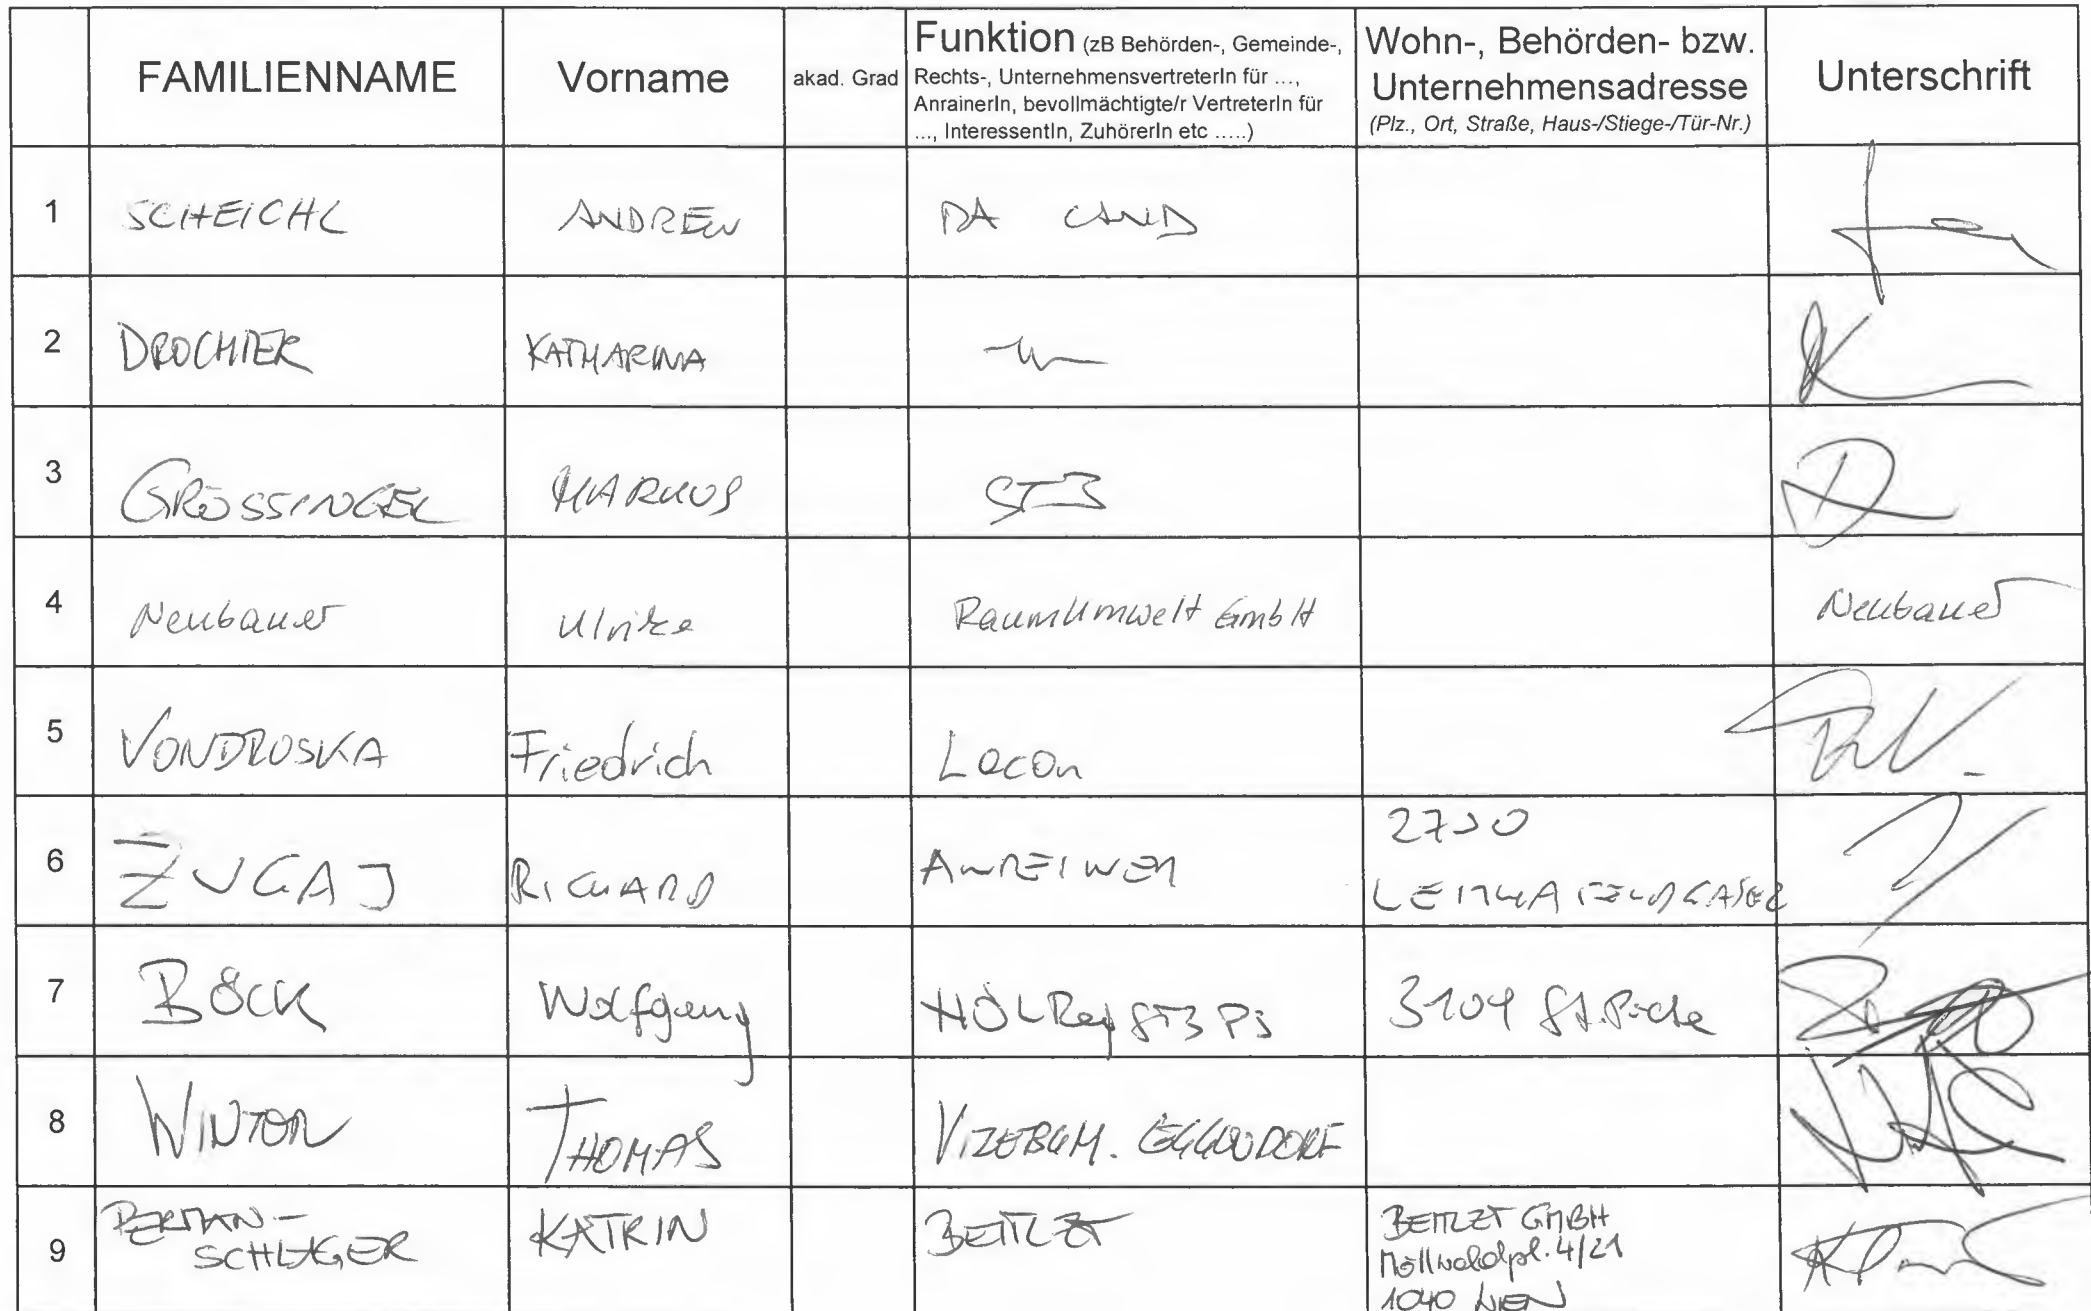 FAMILIENNAME Vorname akad. Grad Funktion (zB Behörden-, Gemeinde-,
Rechts-, UnternehmensvertreterIn für ...,
AnrainerIn, bevollmächtigte/r VertreterIn für
..., InteressentIn, ZuhörerIn etc .....)
Wohn-, Behörden- bzw.
Unternehmensadresse
(Plz., Ort, Straße, Haus-/Stiege-/Tür-Nr.)
Unterschrift
1 SCHEICHL ANDREW DA LAND
2 DROCHTER KATHARINA
3 GRÖSSINGER MARKUS STB
4 Neubauer Ulrike RaumUmwelt GmbH Neubauer
5 VONDRUSKA Friedrich Lacon
6 ZUGAJ RICHARD
7 BÖCK Wolfgang 3109
8 WINTER THOMAS VIZEBGM. EGGENDORF
9 PERTAN-
SCHLAGER KATRIN BEITLZT BEITLZT GMBH
4/21
1040 WIEN